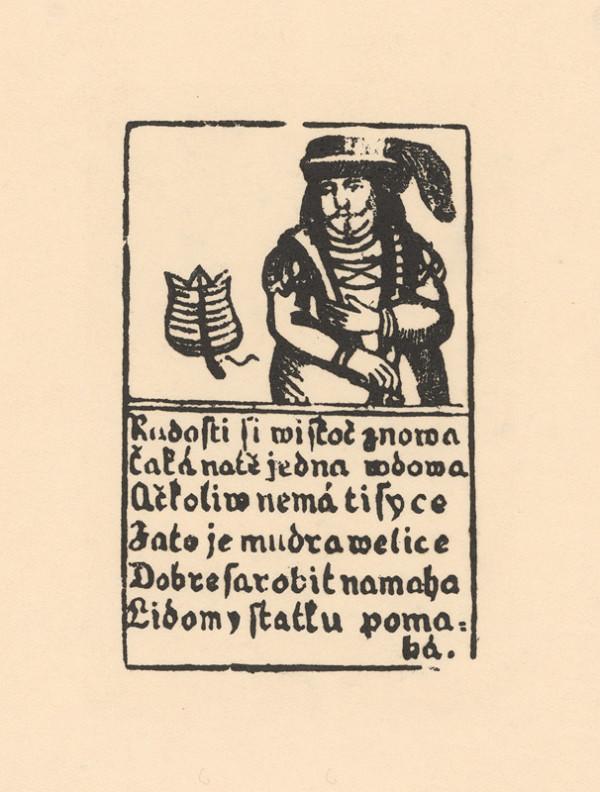 Radosti si wiskoč znowa
Čaká natě jedna wdowa
Ačkoliw nemá tisyce
Zato je mudra welice
Dobre sa robit namaha
Lidom y statku poma=
há.